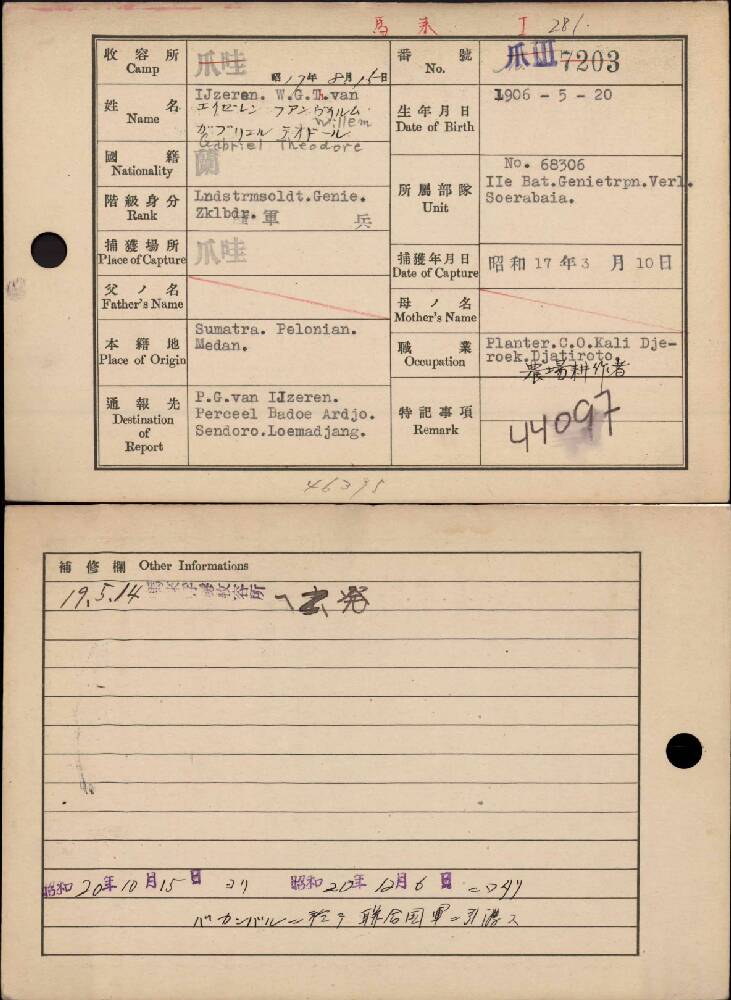 馬来 I 281.
收容所 Camp 爪哇 昭17年8月15日
番號 No. 爪III 7203
姓名 Name IJzeren. W.G.Th.van
エイゼーレン ファン ヴィルム Willem
ガブリエル テオドール
Gabriel Theodore
生年月日 Date of Birth 1906 - 5 - 20
國籍 Nationality 蘭
階級身分 Rank Lndstrmsoldt.Genie.
Zklbdr. 軍 兵
所屬部隊 Unit No. 68306
IIe Bat.Genietrpn.Verl.
Soerabaia.
捕獲場所 Place of Capture 爪哇
捕獲年月日 Date of Capture 昭和17年3月10日
父ノ名 Father's Name
母ノ名 Mother's Name
本籍地 Place of Origin Sumatra. Pelonian.
Medan.
職業 Occupation Planter.C.O.Kali Dje-
roek.Djatiroto.
農場耕作者
通報先 Destination of Report P.G.van IJzeren.
Perceel Badoe Ardjo.
Sendoro.Loemadjang.
特記事項 Remark 44097
46395
補修欄 Other Informations
19.5.14 馬来俘虜收容所ヘ出発
昭和20年10月15日 ヨリ 昭和20年12月6日
パカンバル 於テ 聯合国軍ニ引渡ス